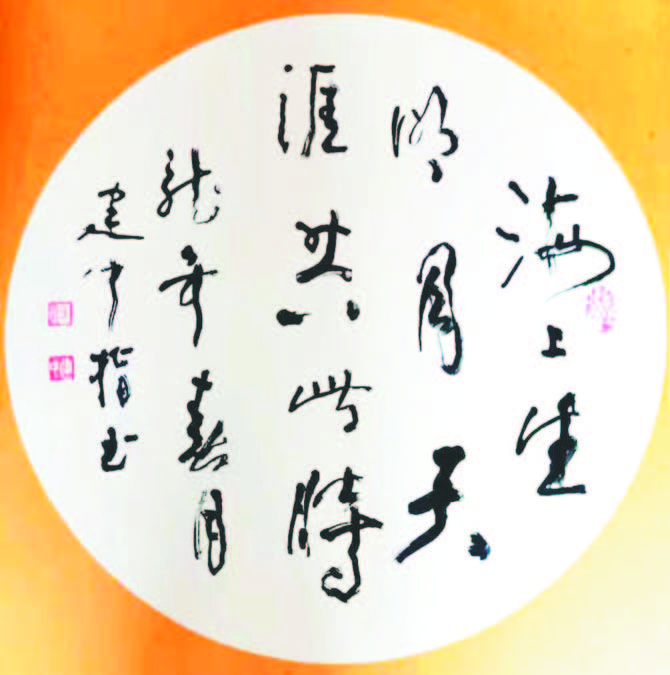 海上生
明月天
涯共此時
龍年春月
建中指书